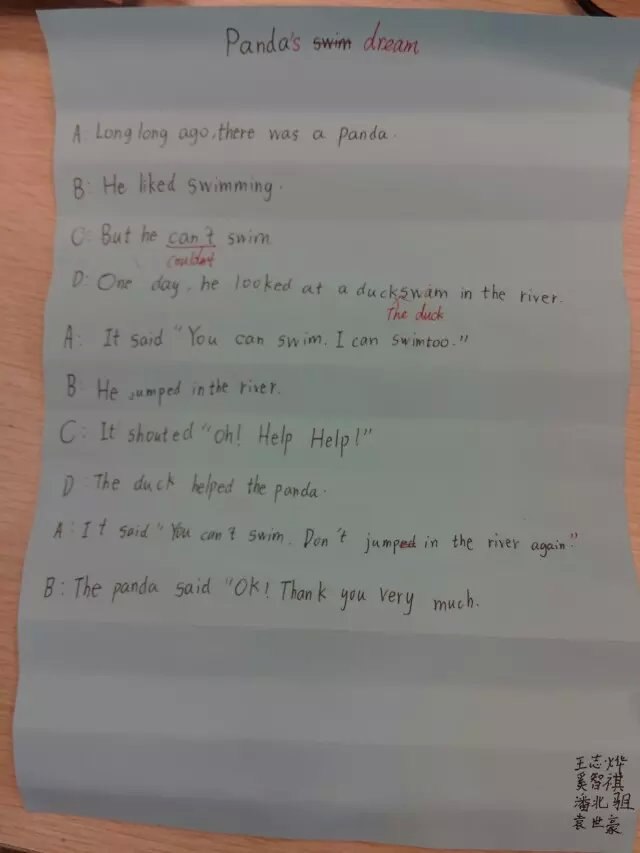 Panda's swim dream
A: Long long ago, there was a panda.
B: He liked swimming.
C: But he can't swim
couldn't
D: One day, he looked at a duck swam in the river.
The duck
A: It said "You can swim. I can swim too."
B: He jumped in the river.
C: It shouted "Oh! Help Help!"
D: The duck helped the panda.
A: It said "You can't swim. Don't jumped in the river again."
B: The panda said "OK! Thank you very much.
王志烨
奚智祺
潘北驵
袁世豪